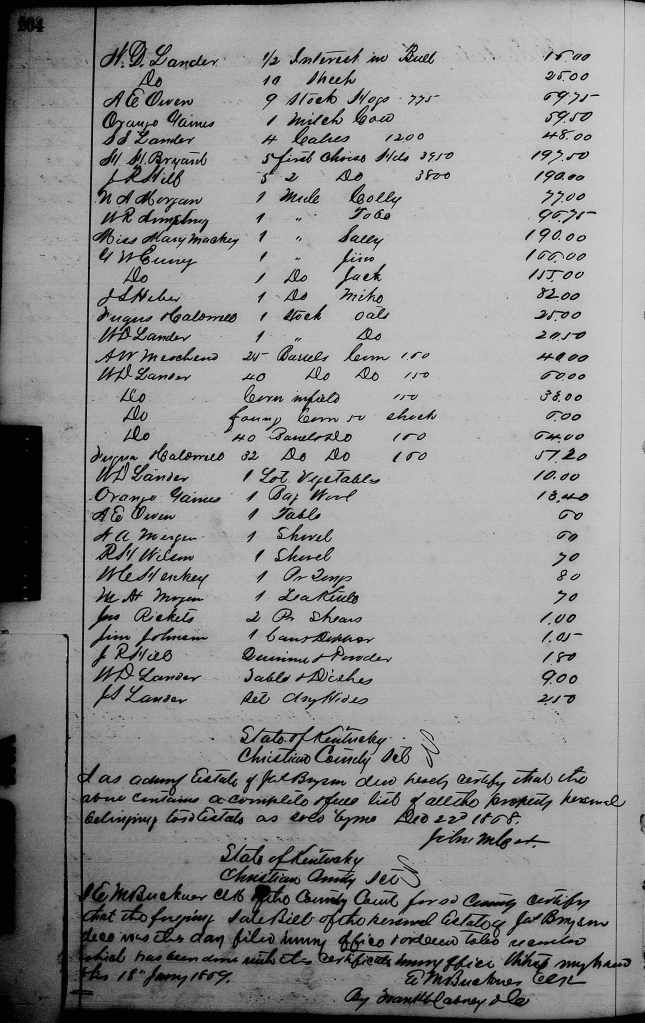 204
W. D. Lander 1/2 Interest in Bull 15.00
Do 10 Sheep 25.00
A E Owen 9 Stock Hogs 775 69.75
Orange Gaines 1 Milch Cow 59.50
S S Lander 4 Calves 1200 48.00
M. H. Bryant 5 first Choice Hds 3950 197.50
J R Hill 5 2 Do 3800 190.00
N A Morgan 1 Mule Colly 77.00
W R 1 " Tobe 96.75
Miss Mary Mackey 1 " Sally 190.00
G W 1 " Jim 166.00
Do 1 Do Jack 155.00
J S 1 Do Mike 82.00
1 Stock Oats 25.00
W D Lander 1 " Do 20.50
A W 25 Barrels Corn 160 40.00
W D Lander 40 Do Do 150 60.00
Do Corn in field 150 38.00
Do Corn 50 shock 6.00
Do 40 Barrels Do 160 64.00
32 Do Do 160 51.20
W D Lander 1 Lot Vegetables 10.00
Orange Gaines 1 Bag Wool 13.40
A E Owen 1 Table 60
N A Morgan 1 Shovel 60
R H Wilson 1 Shovel 70
W C 1 Pr Tongs 80
1 Tea Kettle 70
Jas Rickets 2 Pr Shears 1.00
Jim Johnson 1 1.05
J R Hill Quinine & Powder 1.80
W D Lander Table & Dishes 9.00
J S Lander Set dry Hides 2.50
State of Kentucky
Christian County Sct
I as Estate of Jas Bryan decd certify that the
above contains a complete list of all the property personal
belonging to sd Estate as sold by me Dec 22d 1868.
John
State of Kentucky
Christian County Sct
I E M Buckner Clk of the County Court for sd County certify
that the forgoing Sale Bill of the personal Estate of Jas Bryan
decd was this day filed in my office & ordered to be recorded
which has been done with this certificate in my office Witness my hand
this 18" Jany 1869. E M Buckner Clk
By